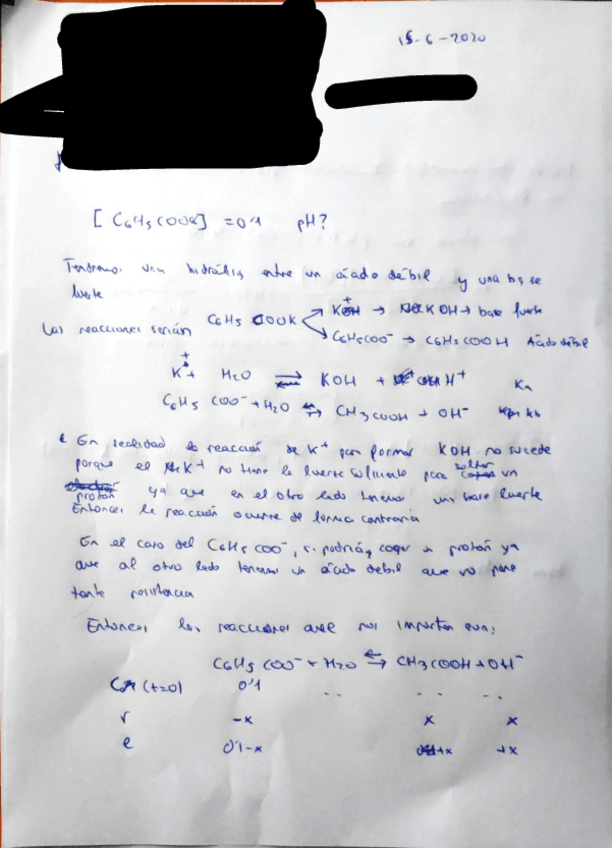 15-6-2020
[C6H5COOK] = 0'1 pH?
Tendremos una hidrólisis entre un ácido débil y una base
fuerte
Las reacciones serían C6H5 COOK K+ → KOH → base fuerte
C6H5COO- → C6H5COOH Ácido débil
K+ H2O ⇌ KOH + H+ Ka
C6H5 COO- + H2O ⇌ CH3COOH + OH- Kb
En realidad la reacción de K+ para formar KOH no sucede
porque el K+ no tiene la fuerza suficiente para soltar un
protón ya que en el otro lado tenemos una base fuerte
Entonces la reacción ocurre de forma contraria
En el caso del C6H5 COO-, si podría coger un protón ya
que al otro lado tenemos un ácido débil que no pone
tante resistencia
Entonces las reacciones que nos importan son:
C6H5 COO- + H2O ⇌ CH3COOH + OH-
(t=0) 0'1 -- -- --
r -x x x
e 0'1-x +x +x